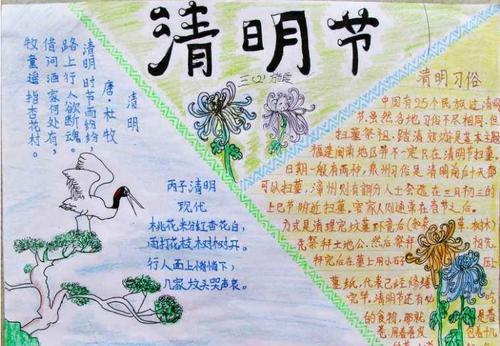 清明节
三(2)
清明
唐·杜牧
清明时节雨纷纷,
路上行人欲断魂。
借问酒家何处有,
牧童遥指杏花村。
丙子清明
现代
桃花粉红杏花白,
雨打花枝树树开。
行人面上悄悄下,
几家坟头哭声哀。
清明习俗
中国有25个民族过清明
节,虽然各地习俗不尽相同,但
扫墓祭祖、踏清郊游是基本主题
福建闽南地区并不一定只在清明节扫墓
日期一般有两种,泉州习俗是清明前后十天都
可以扫墓,漳州则有部分人士会选在三月初三的
上巳节附近扫墓。客家人则通常在春节之后。
方式是清理完坟墓环境后
先祭拜土地公,然后祭
拜完后在墓上用小石 压上
墓纸,代表已经修缮
完毕。清明节还有必
的食物,那就